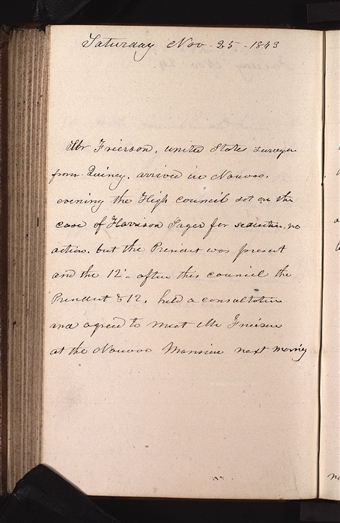 Saturday Nov. 25 - 1843
Mr Frierson, united States surveyor
from Quincy. arrived in Nauvoo.
evening the High council sat on the
case of Harrison Sager for seduction, no
action. but the President was present
and the 12. - after this council the
President & 12, held a consultation
and agreed to meet Mr Frierson
at the Nauvoo Mansion next morning